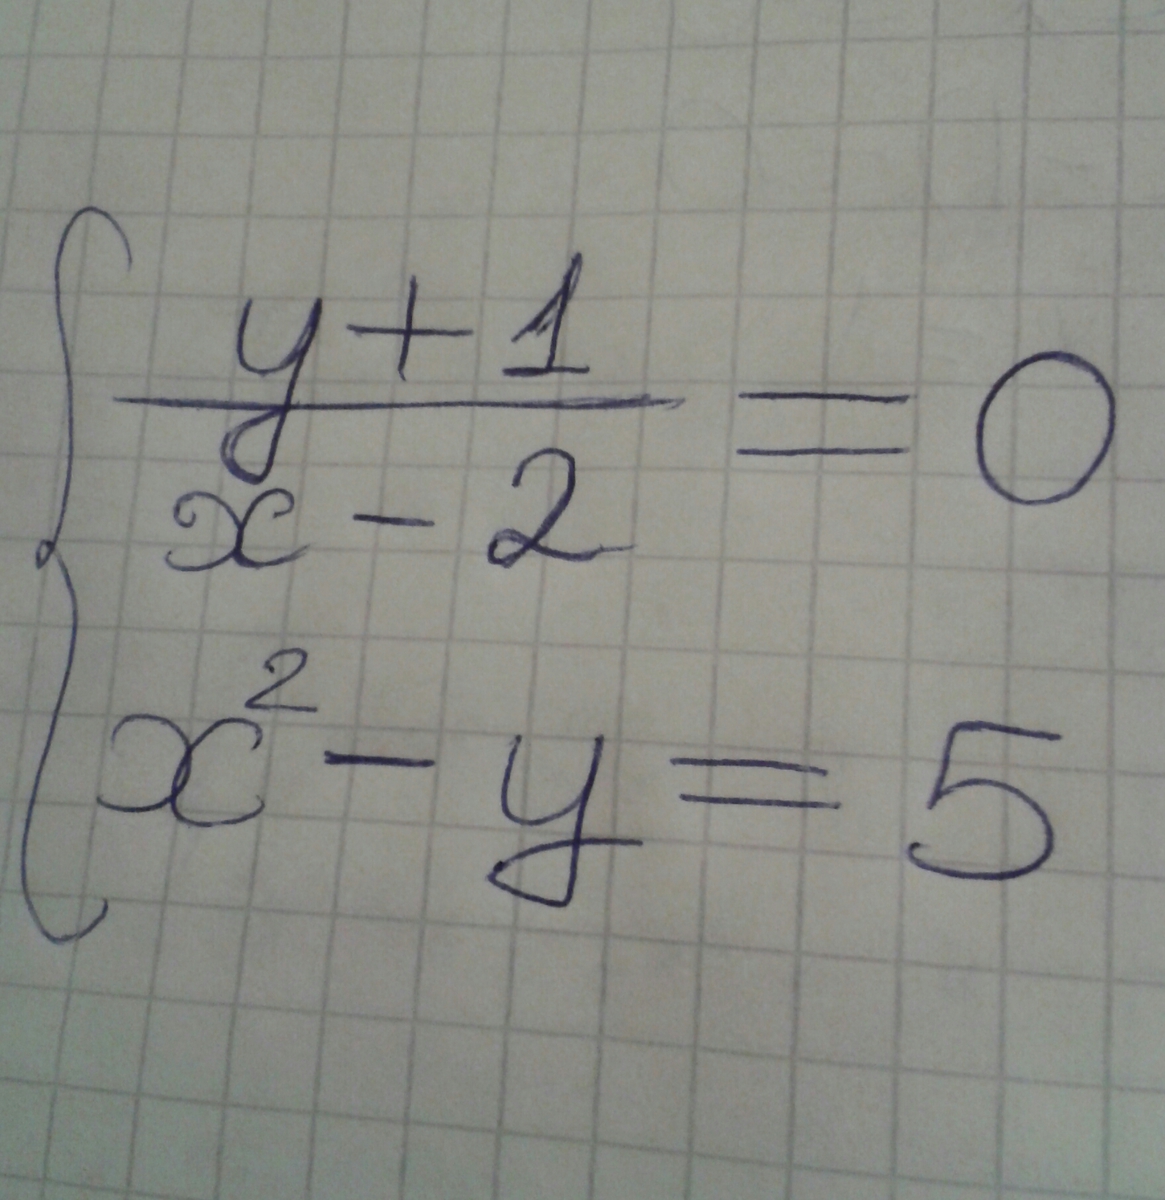 y + 1
x - 2
= 0
x² - y = 5